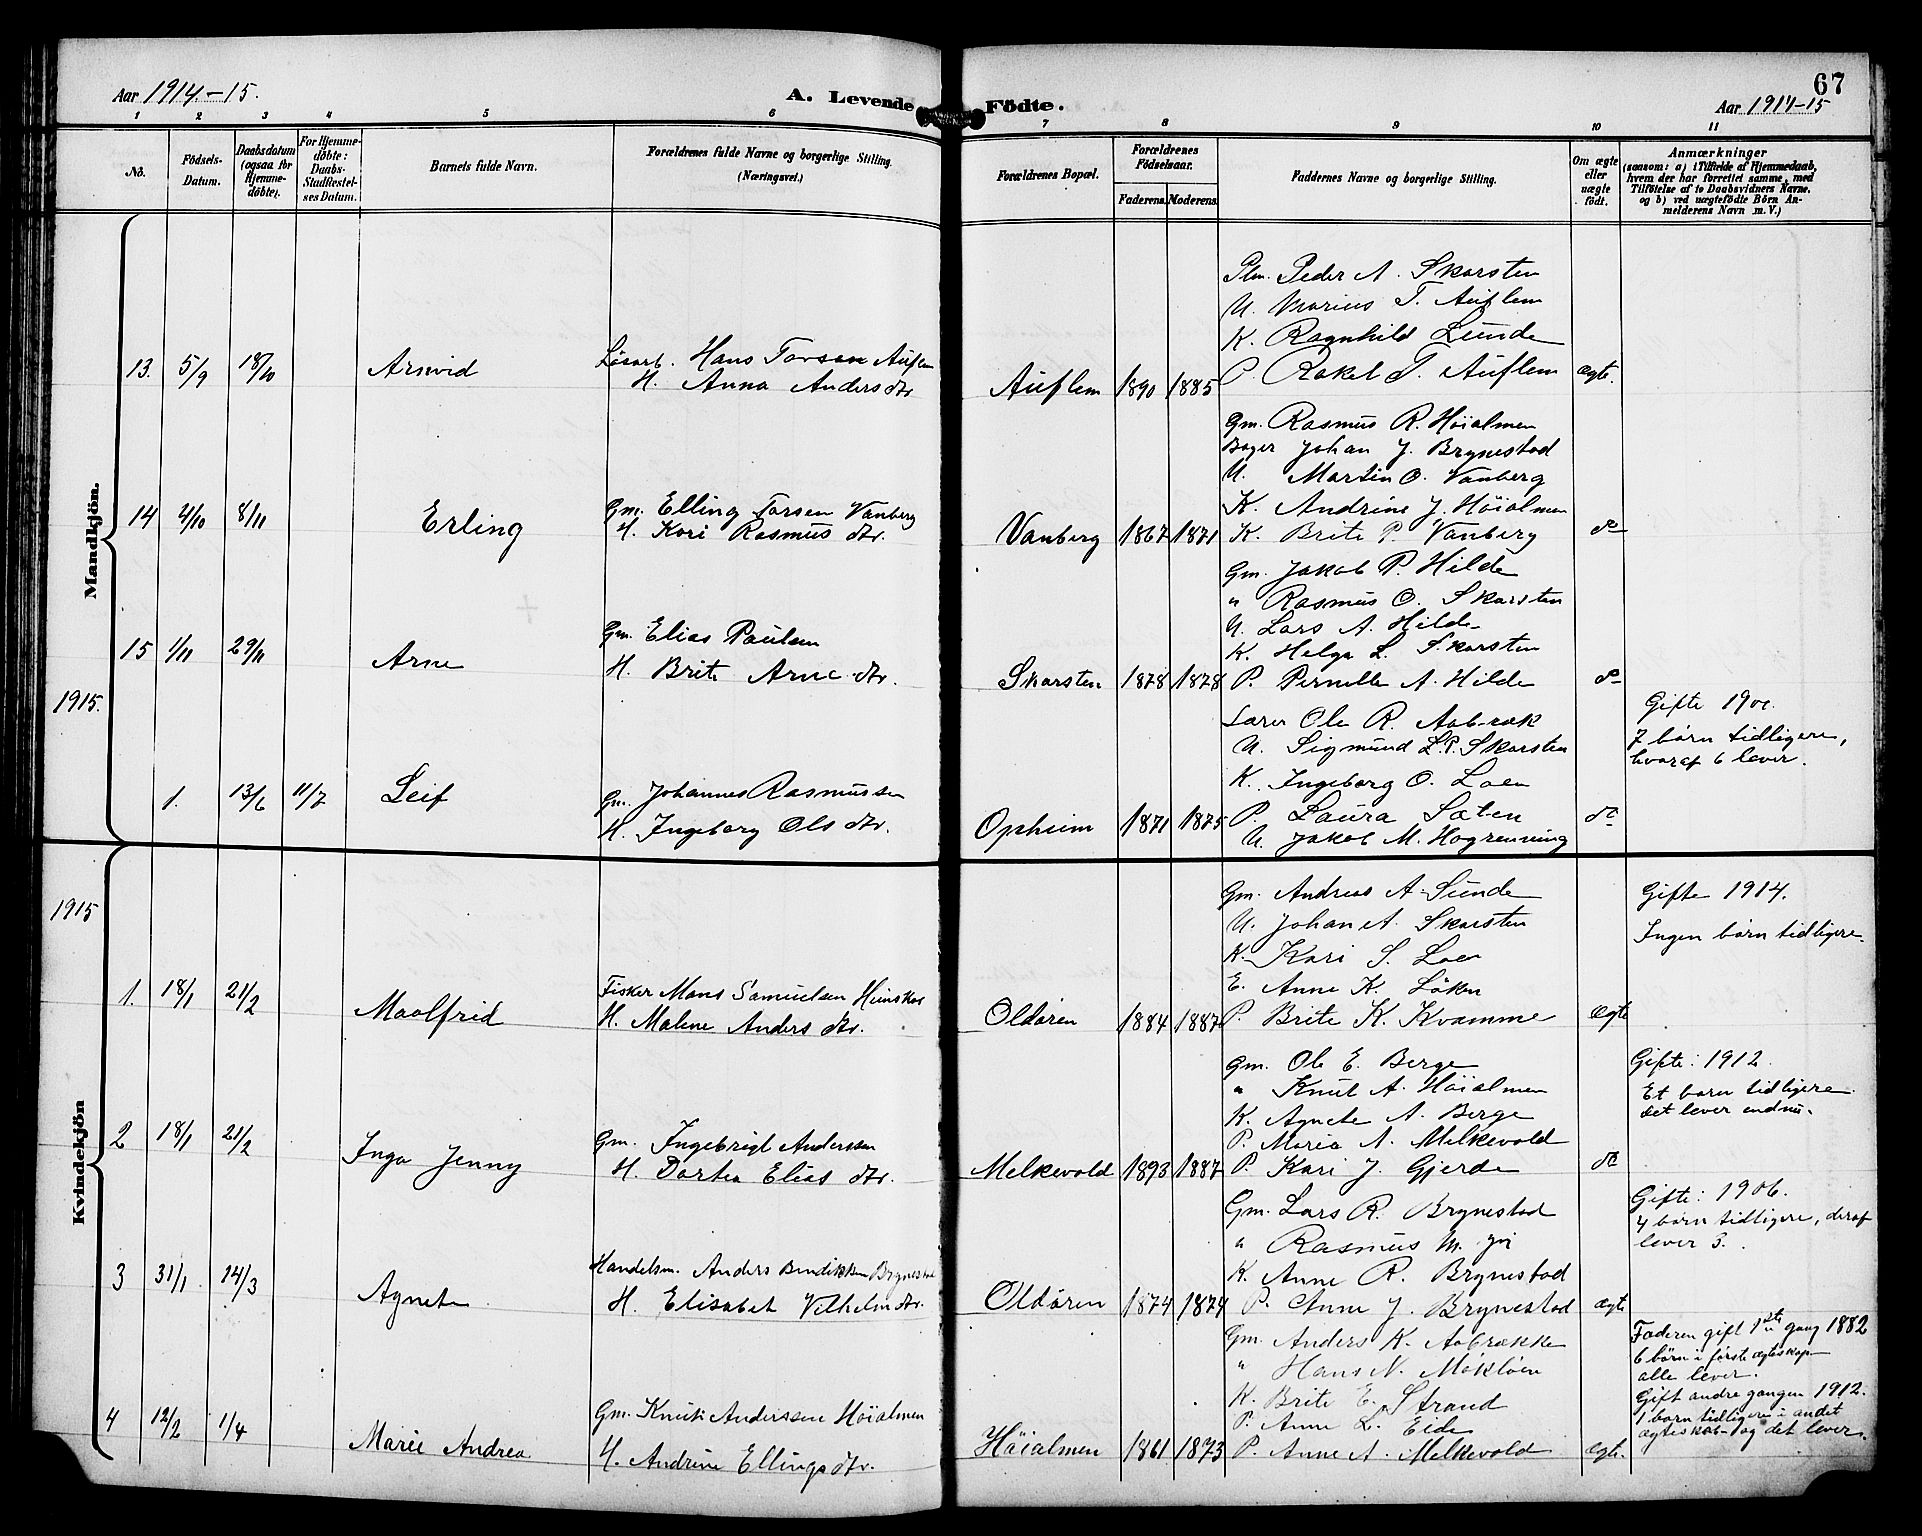 Aar 1914.-15.
A. Levende Födte.
67
Aar 1914-15
1 2 3 4 5 6 7 8 9 10 11
No.
Födsels-Datum.
Daabsdatum (ogsaa for Hjemme-döbte).
For Hjemme-døbte: Daabs-Stadfæstel-ses Datum.
Barnets fulde Navn.
Forældrenes fulde Navne og borgerlige Stilling. (Næringsvei.)
Forældrenes Bopæl.
Forældrenes Födselsaar.
Faderens. Moderens.
Faddernes Navne og borgerlige Stilling.
Om ægte eller uægte födt.
Anmærkninger
(saasom: a) i Tilfælde af Hjemmedaab, hvem der har forrettet samme, med Tilföielse af to Daabsvidners Navne, og b) ved uægtefödte Börn An-melderens Navn m.V.)
Mandkjön.
Plm. Peder A. Skarsten
U. Marius T. Auflem
K. Ragnhild Sunde
13. 5/9 18/10 Arnvid Løsarb. Hans Torsen Auflem
H. Anna Anders dtr Auflem 1890 1885 P. Rakel T. Auflem ægte.
Gm. Rasmus R. Höialmen
Bager Johan J. Brynestad
U. Martin O. Vanberg
K. Andrine J. Höialmen
14 4/10 8/11 Erling Gm. Elling Torsen Vanberg
H. Kari Rasmus dtr. Vanberg 1867 1871 K. Brite P. Vanberg do
Gm. Jakob P. Hilde
" Rasmus O. Skarsten
U. Lars A. Hilde
K. Helga L. Skarsten
15 1/11 29/11 Arne Gm. Elias Paulsen
H. Brite Arne dtr. Skarsten 1878 1878 P. Pernille A. Hilde do
1915.
Lærer Ole R. Aabræk
U. Sigmund L.P. Skarsten
K. Ingeborg O. Loen
1. 13/6 11/7 Leif Gm. Johannes Rasmussen
H. Ingeborg Ols dtr. Opheim 1871 1875 P. Laura Sæten do
U. Jakob M. Hogrenning
Gifte 1900.
7 børn tidligere,
hvoraf 6 lever.
1915
Kvindekjön
Gm. Andreas A. Sunde
U. Johan A. Skarsten
K. Kari S. Loen
E. Anne K. Løken
1. 18/1 21/2 Maalfrid Fisker Mons Samuelsen
H. Malene Anders dtr. Oldøren 1884 1887 P. Brite K. Kvamme ægte
Gifte 1914.
Ingen børn tidligere.
Gm. Ole E. Berge
" Knut A. Höialmen
K. Agnete A. Berge
P. Maria A. Melkevold
2 18/1 21/2 Inga Jenny Gm. Ingebrigt Anderssen
H. Dortea Elias dtr. Melkevold 1893 1887 P. Kari J. Gjerde do
Gifte: 1912.
Et barn tidligere
det lever endnu.
Gm. Lars R. Brynestad
" Rasmus M. Yri
K. Anne R. Brynestad
3 31/1 14/3 Agnete Handelsm. Anders Bendiksen Brynestad
H. Elisabet Vilhelm dtr. Oldören 1874 1874 P. Anne J. Brynestad ægte
Gifte: 1906.
4 børn tidligere, deraf
lever 3.
Gm. Anders K. Aabrække
" Hans N. Mökløen
K. Brite E. Strand
P. Anne L. Eide
4 12/2 1/4 Marie Andrea Gm. Knut Anderssen Höialmen
H. Andrine Ellings dtr. Höialmen 1861 1873 P. Anne A. Melkevold ægte.
Faderen gift 1ste gang 1882
6 børn i første ægteskap
alle lever.
Gift andre gangen 1912.
1 barn tidligere i andet
ægteskab og det lever.